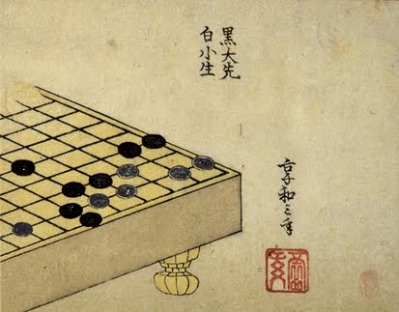 黒大先
白小生
享和三年